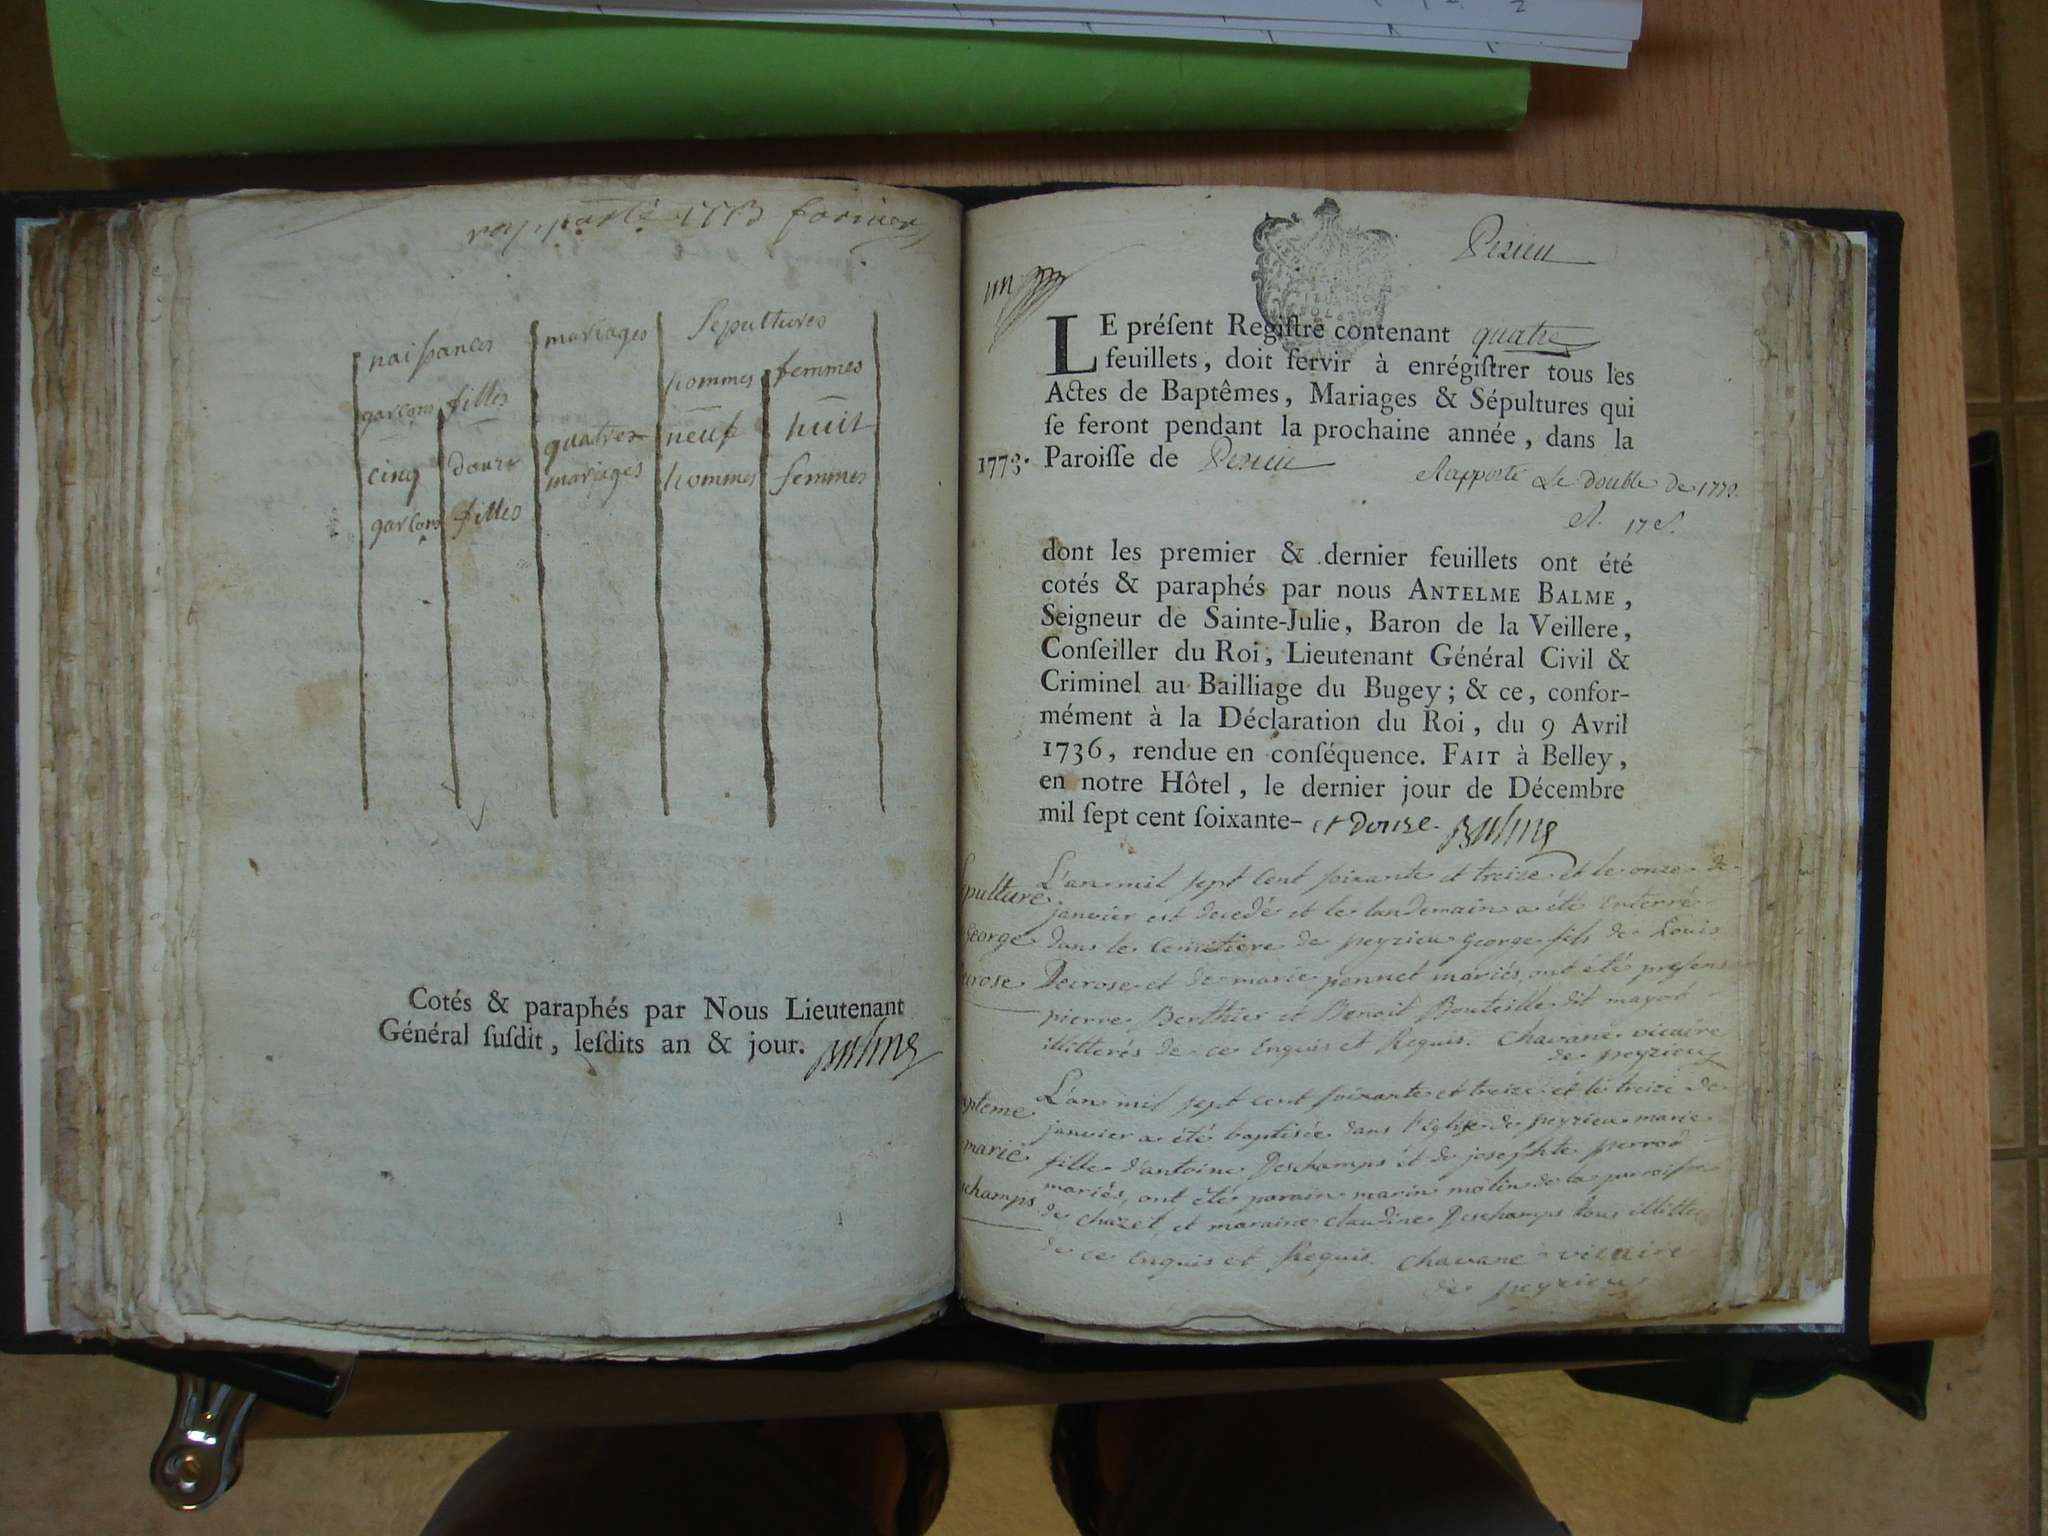 rapporté 1773 fevrier
naissances mariages Sepultures
garcons filles hommes femmes
cinq douze quatre neuf huit
garcons filles mariages hommes femmes
Cotés & paraphés par Nous Lieutenant
Général ſuſdit, leſdits an & jour. Balme
Pezieu
un
LE préſent Regiſtre contenant quatre
feuillets, doit ſervir à enrégiſtrer tous les
Actes de Baptêmes, Mariages & Sépultures qui
ſe feront pendant la prochaine année, dans la
1773. Paroiſſe de Pezieu
Rapporté Le double de 1772.
dont les premier & dernier feuillets ont été
cotés & paraphés par nous ANTELME BALME,
Seigneur de Sainte-Julie, Baron de la Veillere,
Conſeiller du Roi, Lieutenant Général Civil &
Criminel au Bailliage du Bugey; & ce, confor-
mément à la Déclaration du Roi, du 9 Avril
1736, rendue en conſéquence. FAIT à Belley,
en notre Hôtel, le dernier jour de Décembre
mil ſept cent ſoixante- et douze. Balme
pulture L'an mil sept cent soixante et treize et le onze de
janvier est decedé et le landemain a été enterré
George dans le cemetiere de peyzieu george fils de Louis
crose Decrose et de marie ponnet mariés, ont été presens
pierre Berthier et Benoit Bouteille dit mayot
illitterés de ce Enquis et Requis. Chavane vicaire
de peyzieu
pteme L'an mil sept cent soixante et treize et le treize de
janvier a été baptisée dans l'Eglise de peyzieu marie
marie fille d'antoine Deschamps et de josephte perrod
mariés, ont été parain marin molin de la paroisse
champs de chazet, et maraine claudine Deschamps tous illitte
de ce Enquis et Requis. Chavane vicaire
de peyzieu